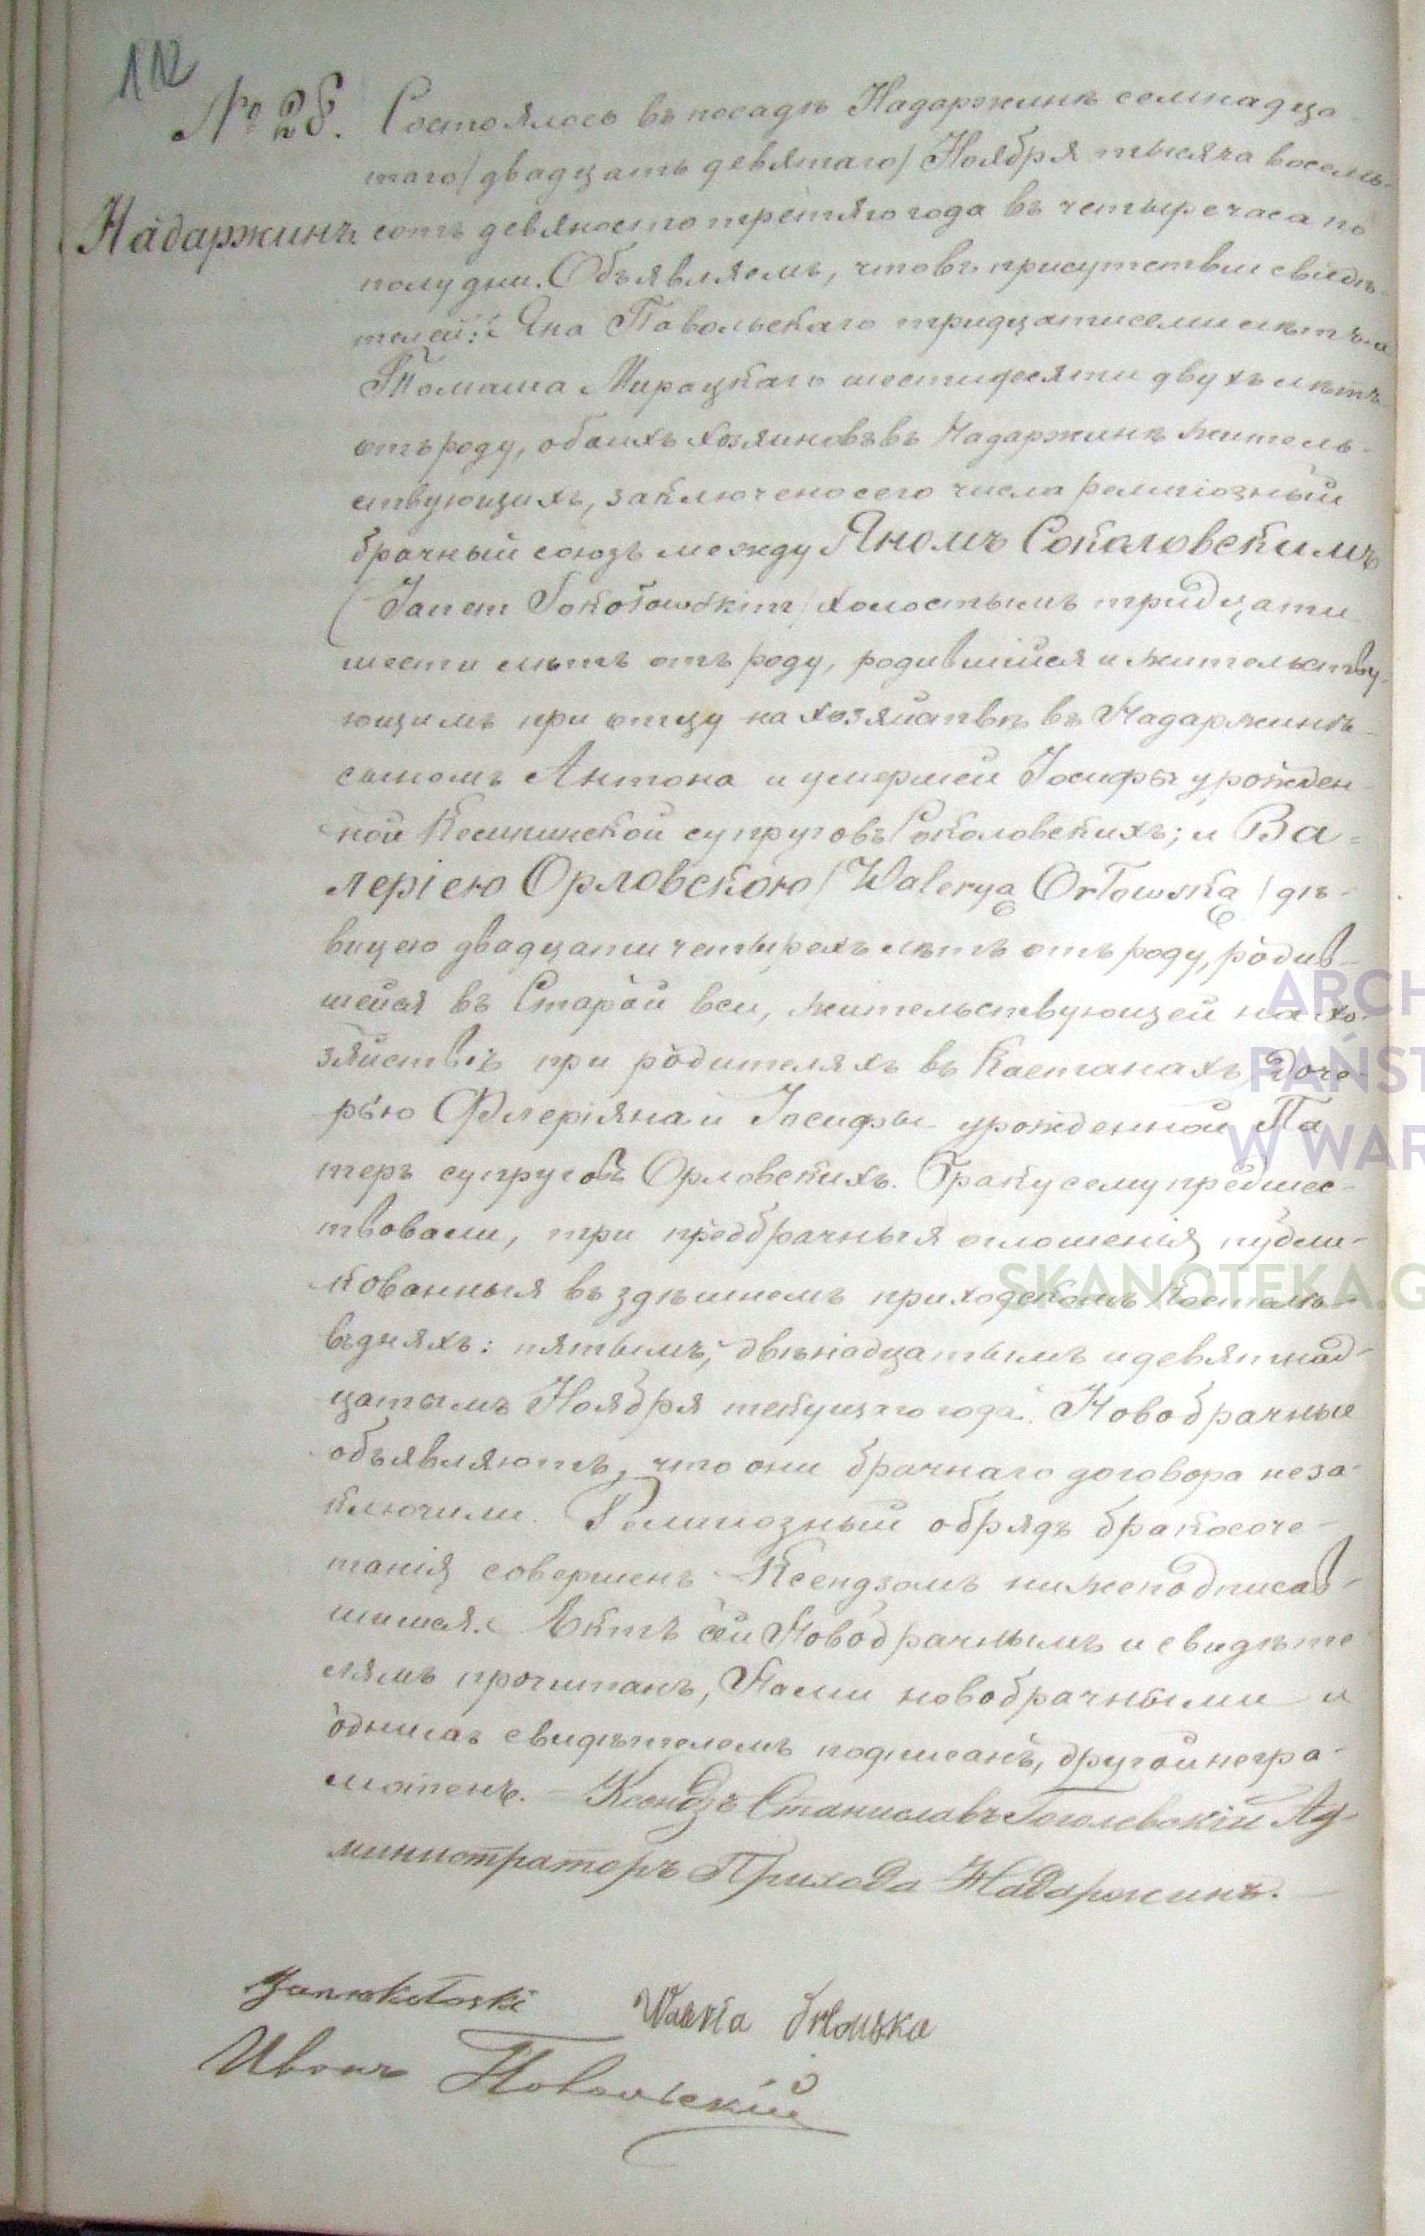 112
№ 28.
Надаржинъ
Состоялось въ посадѣ Надаржинѣ семнадца-
таго /двадцать девятаго/ Ноября тысяча восемь-
сотъ девяносто третяго года въ четыре часа по
полудни. Объявляемъ, что въ присутствіи свидѣ-
телей: Яна Павольскаго тридцати семи лѣтъ и
Томаша Мирацкаго шестидесяти двухъ лѣтъ
отъ роду, обоихъ хозяиновъ въ Надаржинѣ житель-
ствующихъ, заключено сего числа религіозный
брачный союзъ между Яномъ Соколовскимъ
/Janem Sokołowskim/ холостымъ тридцати
шести лѣтъ отъ роду, родившійся и жительству-
ющимъ при отцу на хозяйствѣ въ Надаржинѣ
сыномъ Антона и умершей Іосифы урожден-
ной супруговъ Соколовскихъ; и Ва-
леріею Орловскою /Waleryą Orłowską/ дѣ-
вицею двадцати четырехъ лѣтъ отъ роду, родив-
шейся въ Старой вси, жительствующей на хо-
зяйствѣ при родителяхъ въ Каетанахъ, доче-
рью Флеріяна и Іосифы урожденной Па
теръ супруговъ Орловскихъ. Браку сему предшес-
твовали, три предбрачныя оглошенія публи-
кованныя въ здѣшнемъ приходскомъ Костелѣ
въ дняхъ: пятымъ, двѣнадцатымъ и девятнад-
цатымъ Ноября текущаго года. Новобрачные
объявляютъ, что они брачнаго договора неза-
ключили. Религіозный обрядъ бракосоче-
танія совершенъ Ксендзомъ нижеподписав-
шимся. Актъ сей Новобрачнымъ и свидѣте
лямъ прочитанъ, Нами новобрачными и
однимъ свидѣтелемъ подписанъ, другой негра-
мотенъ. Ксендзъ Станиславъ Гоголевскій Ад-
министраторъ Прихода Надаржинъ.
Jan Sokołoski Waeria Orlouska
Иванъ Павольскій
ARCH
PAŃST
W WAR
SKANOTEKA.G